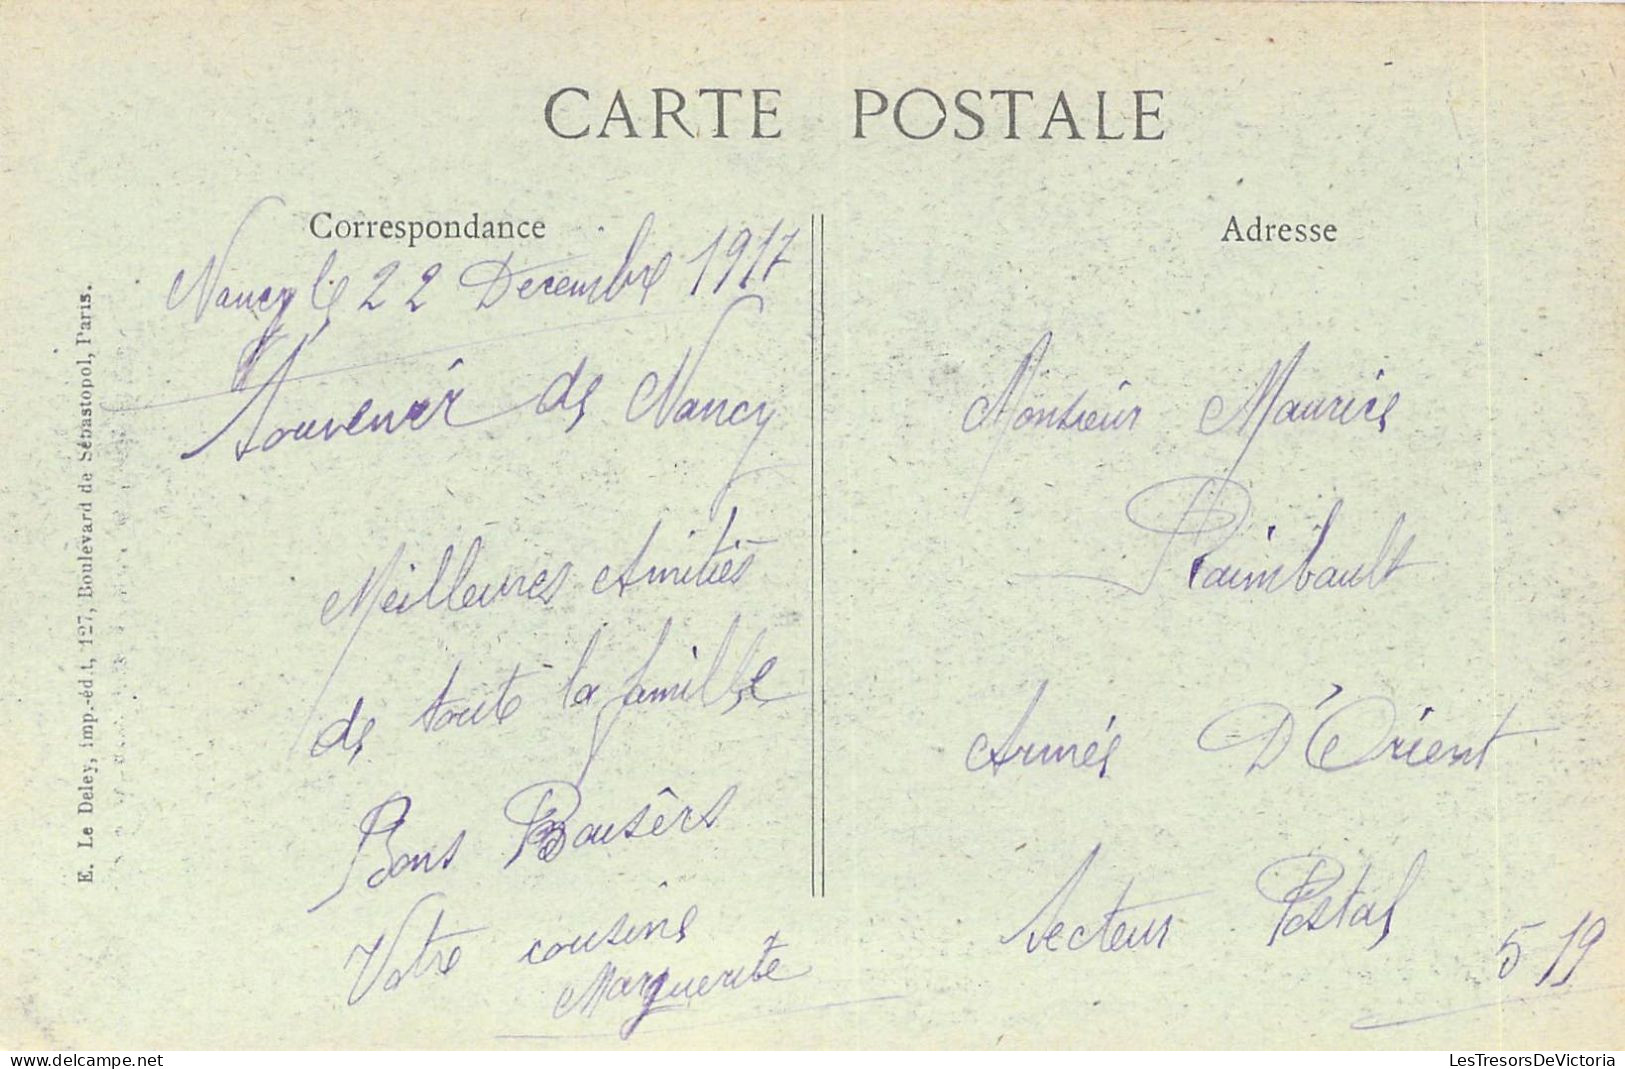 CARTE POSTALE
Correspondance
Nancy le 22 Decembre 1917
Souvenir de Nancy
Meilleures Amitiés
de toute la famille
Bons Baisêrs
Votre cousine
Marguerite
Adresse
Monsieur Maurice
Raimbault
Armée D'Orient
Secteur Postal
519
E. Le Deley, imp.-éd.t, 127, Boulevard de Sébastopol, Paris.
LesTresorsDeVictoria